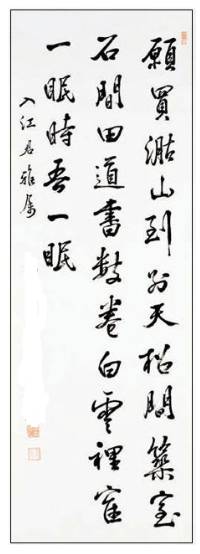 願買山到別天松間築室
石間田道書數卷白雲裡寉
一眠時吾一眠
入江君雅屬